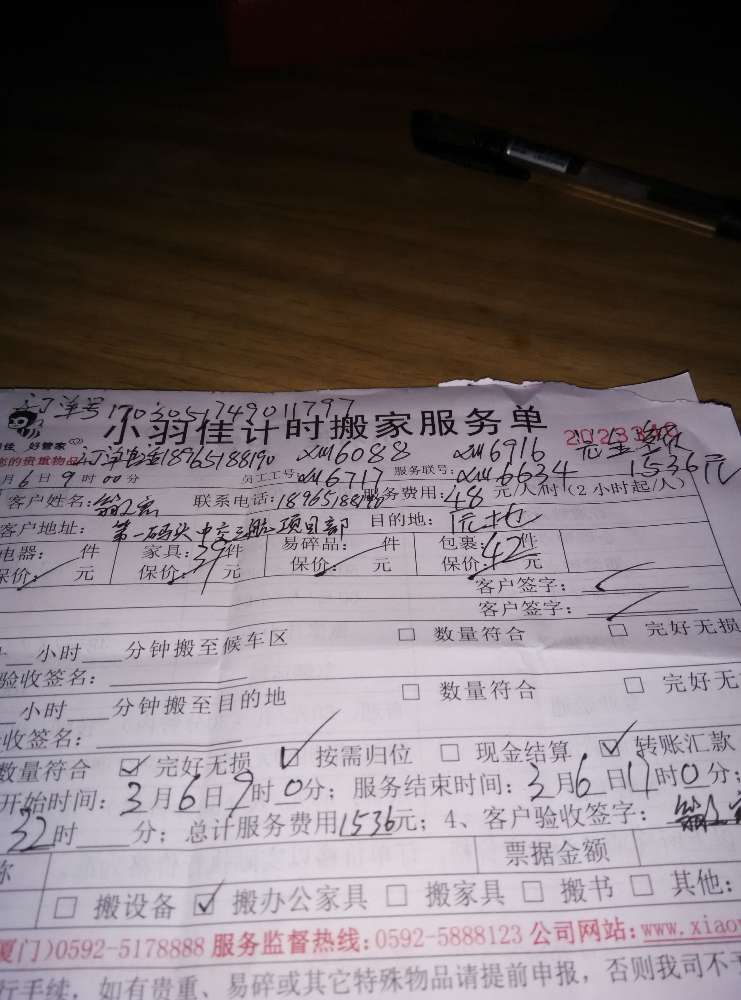 订单号1703051749011797
小羽佳计时搬家服务单
好管家
的贵重物品 18965188190 XM6088 XM6916 1536元
月6日9时00分 员工工号: XM6717 服务联号: XM6634
客户姓名: 联系电话:18965188190 服务费用:48元/人/时(2小时起/人)
客户地址: 第一码头中交三航项目部 目的地: 原地
电器: 件 家具:39件 易碎品: 件 包裹:42件
保价: 元 保价: 元 保价: 元 保价: 元
客户签字:
客户签字:
小时 分钟搬至候车区 □ 数量符合 □ 完好无损
验收签名:
小时 分钟搬至目的地 □ 数量符合 □ 完好无
收签名:
数量符合 ☑ 完好无损 ☑ 按需归位 □ 现金结算 ☑ 转账汇款
开始时间:3月6日9时0分; 服务结束时间:3月6日 时0分;
32时 分; 总计服务费用1536元; 4、客户验收签字:
称 票据金额
□ 搬设备 ☑ 搬办公家具 □ 搬家具 □ 搬书 □ 其他:
厦门)0592-5178888 服务监督热线:0592-5888123 公司网站:www.xiao
行手续, 如有贵重、易碎或其它特殊物品请提前申报, 否则我司不